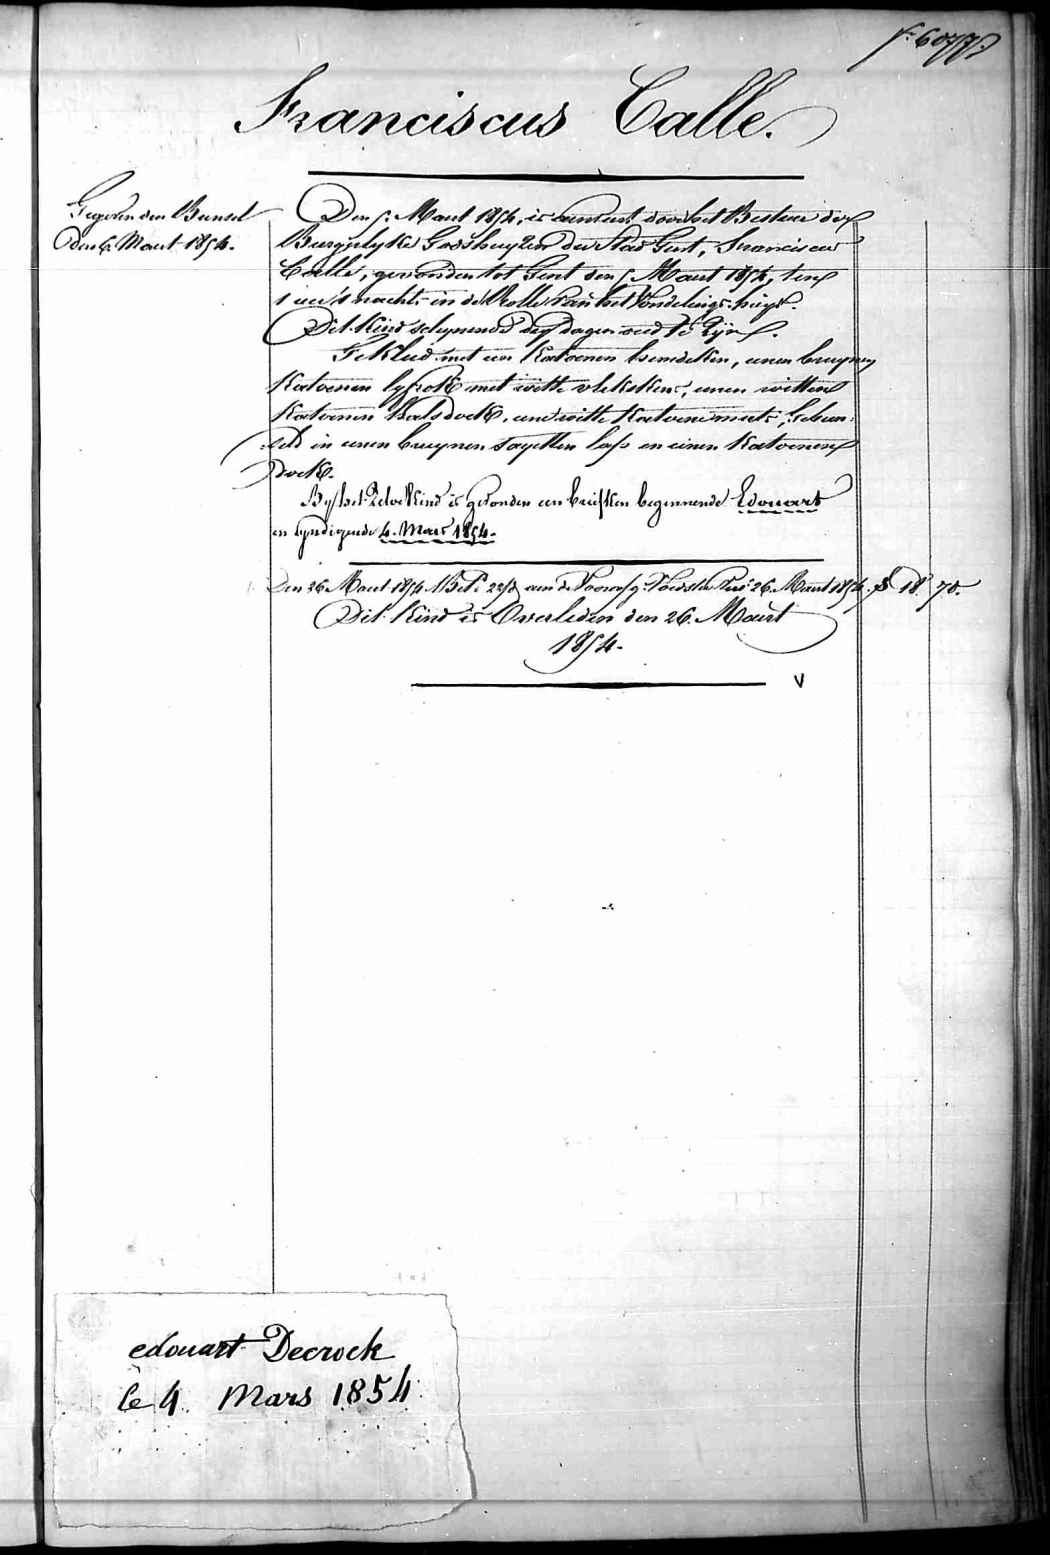 Franciscus Calle.
Gegeven den Bundel
den 6. Maart 1854.
Den 5. Maart 1854, is aenveerd door het Bestuer der
Burgerlyke Godshuyzen der Stad Gent, Franciscus
Calle, gevonden tot Gent den 5 Maart 1854, ten
1 ure 's nachts in de Rolle van het Vondelings-huys.
Dit Kind schynende dry dagen oud te zyn.
Gekleed met een Katoenen hemdeken, eenen bruynen
Katoenen lyfrok met witte vlekskens, eenen witten
Katoenen halsdoek, eene witte Katoene muts, Gebun-
deld in eenen bruynen sayetten lap en eenen Katoenen
doek.
By het zelve Kind is gevonden een briefken beginnende Edouart
en eyndigende 4. Mars 1854.
Den 26 Maart 1854. aan de 26 Maart 1854. 18. 70.
Dit Kind is Overleden den 26. Maart
1854.
V
edouart Decrock
le 4. Mars 1854